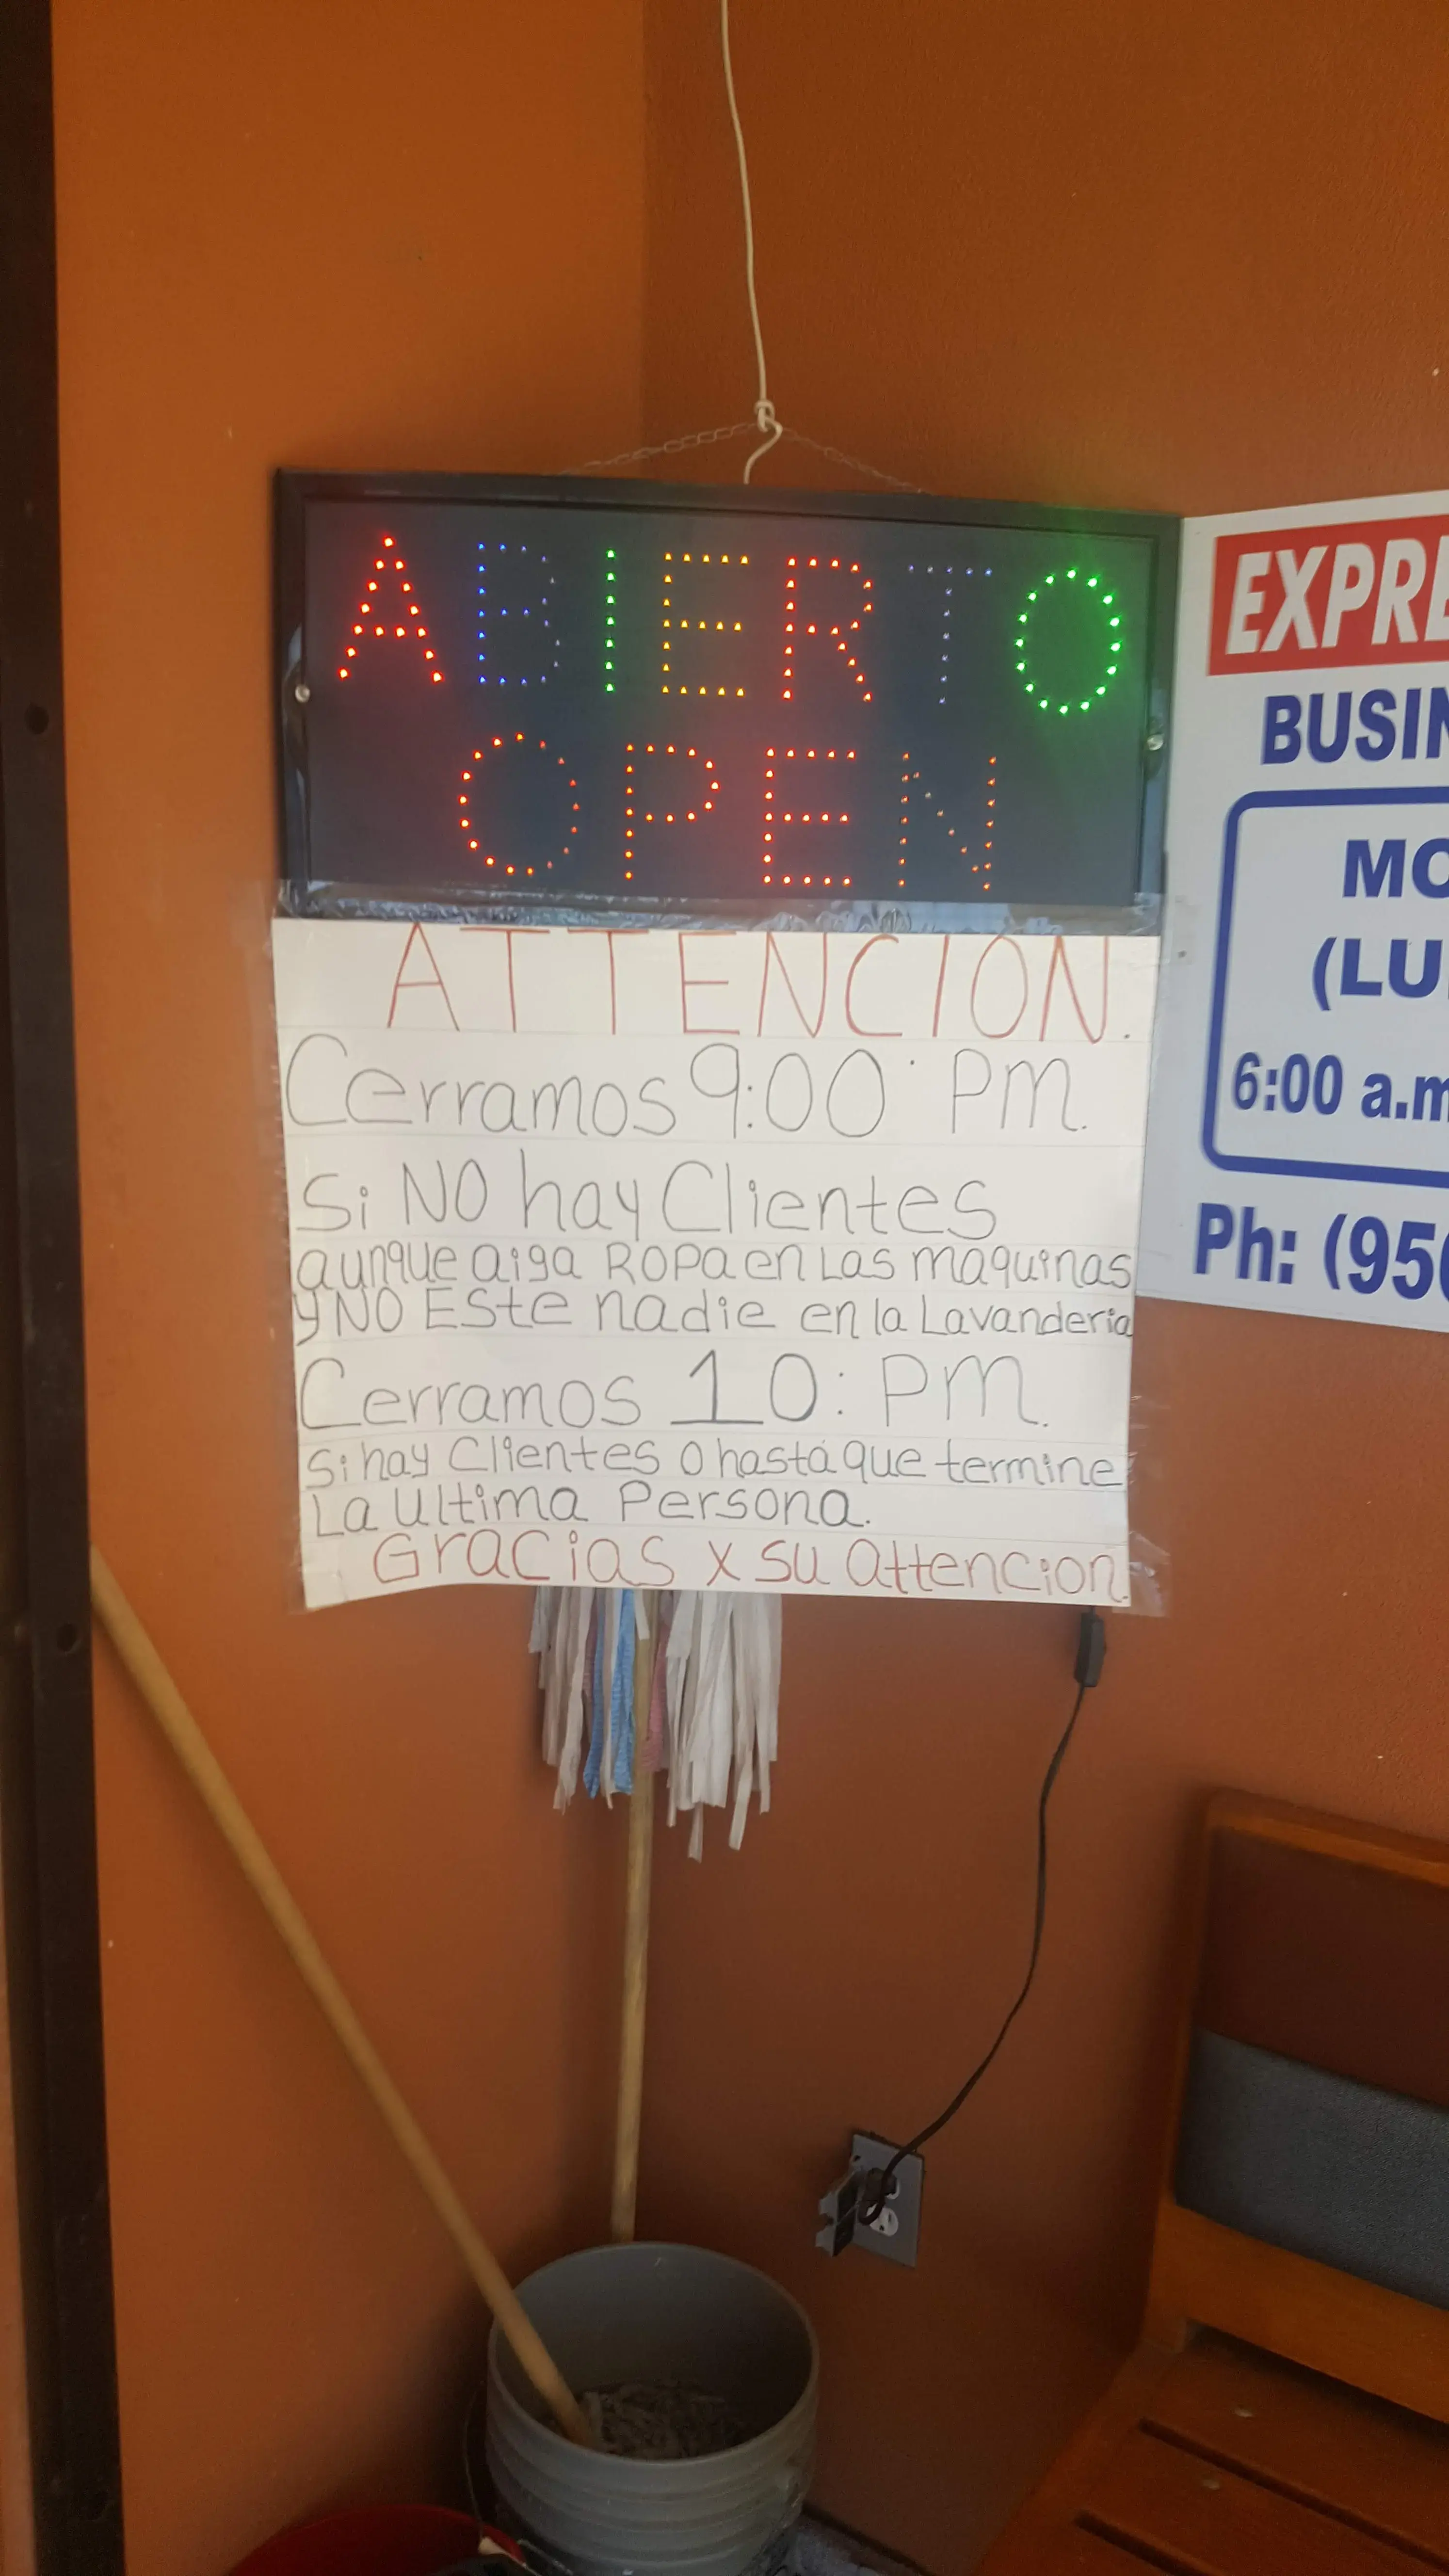 ABIERTO
OPEN
ATTENCION.
Cerramos 9:00 PM.
Si NO hay Clientes
aunque aiga ROPA en Las maquinas
y NO Este nadie en la Lavanderia
Cerramos 10: PM.
Si hay Clientes O hasta que termine
La Ultima Persona.
Gracias x su attencion
EXPRE
BUSIN
MO
(LU
6:00 a.m
Ph: (956